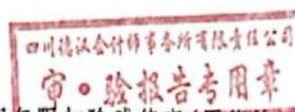 四川德汉会计师事务所有限责任公司
审•验报告专用章